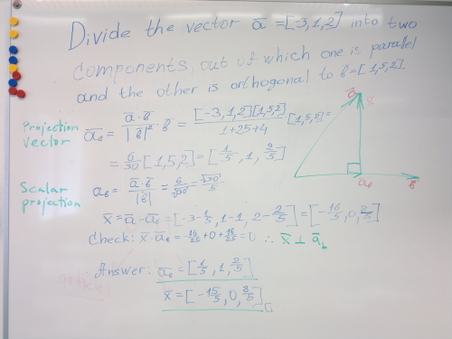 Divide the vector a̅ = [-3,1,2] into two
components, out of which one is parallel
and the other is orthogonal to b̅ = [1,5,2].
Projection vector
a̅_b = (a̅·b̅)/|b̅|² · b̅ = ([-3,1,2][1,5,2])/(1+25+4) [1,5,2] =
= 6/30 · [1,5,2] = [1/5, 1, 2/5]
Scalar projection
a_b = (a̅·b̅)/|b̅| = 6/√30 = √30/5
x̅ = a̅ - a̅_b = [-3-1/5, 1-1, 2-2/5] = [-16/5, 0, 8/5]
Check: x̅·a̅_b = -16/25 + 0 + 16/25 = 0 ∴ x̅ ⊥ a̅_b
Answer: a̅_b = [1/5, 1, 2/5]
x̅ = [-15/5, 0, 8/5]
a̅
x̅
a_b
b̅